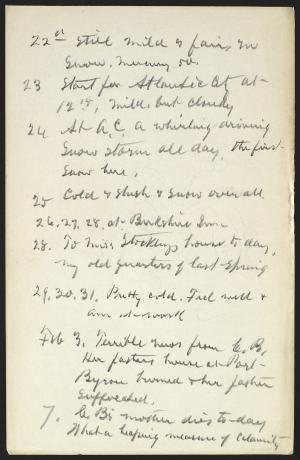 22d Still mild & fair, no
Snow. Mercury 50.
23 Start for Atlantic City at
12 15, mild but cloudy
24 At A.C. a whirling driving
Snow storm all day, the first
Snow here.
25 Cold & slush & snow over all.
26, 27, 28. at Berkshire Inn
28. To Miss Stockleys house to day,
my old quarters of last Spring
29, 30, 31. Pretty cold. Feel well &
am at work
Feb 3. Terrible news from C.B.,
Her fathers house at Port
Byron burned & her father
suffocated.
7. C.B's mother dies to-day
What a heaping measure of calamity